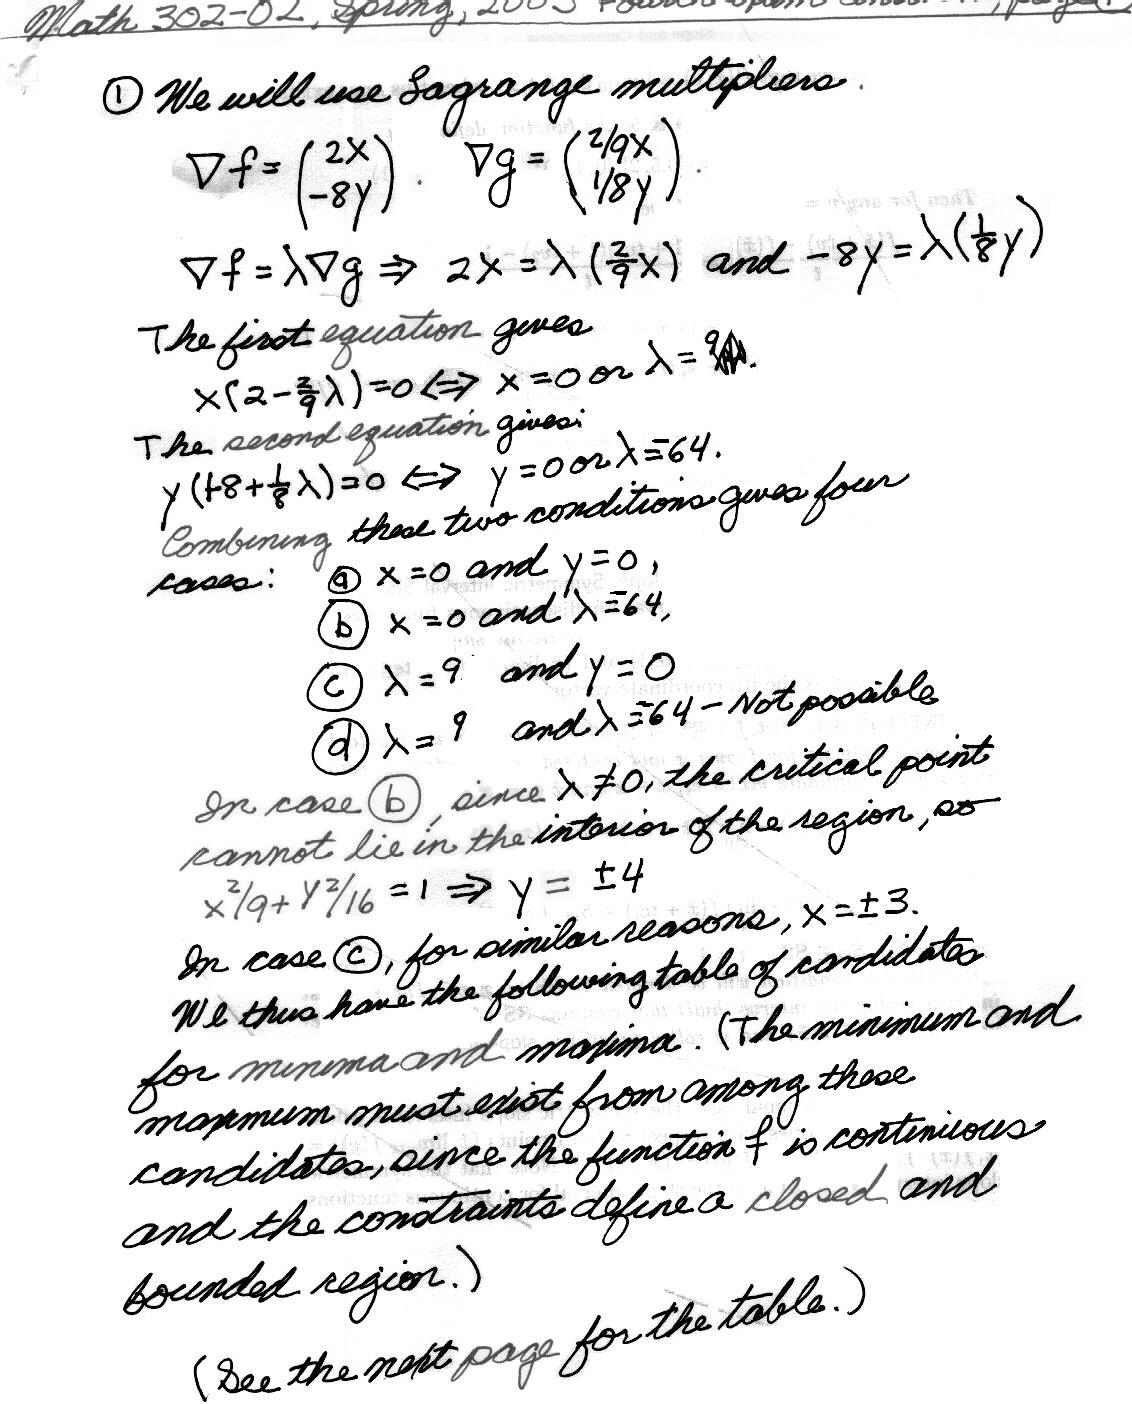 Math 302-02, Spring, 2003
① We will use Lagrange multipliers.
∇f = (2x -8y). ∇g = (2/9x 1/8y).
∇f = λ∇g ⇒ 2x = λ(2/9x) and -8y = λ(1/8y)
The first equation gives
x(2 - 2/9λ) = 0 ⇔ x = 0 or λ = 9.
The second equation gives:
y(+8 + 1/8λ) = 0 ⇔ y = 0 or λ = -64.
Combining these two conditions gives four
cases: ⓐ x = 0 and y = 0,
ⓑ x = 0 and λ = -64,
ⓒ λ = 9 and y = 0
ⓓ λ = 9 and λ = -64 - Not possible
In case ⓑ, since λ ≠ 0, the critical point
cannot lie in the interior of the region, so
x²/9 + y²/16 = 1 ⇒ y = ±4
In case ⓒ, for similar reasons, x = ±3.
We thus have the following table of candidates
for minima and maxima. (The minimum and
maxmum must exist from among these
candidates, since the function f is continuous
and the constraints define a closed and
bounded region.)
(See the next page for the table.)